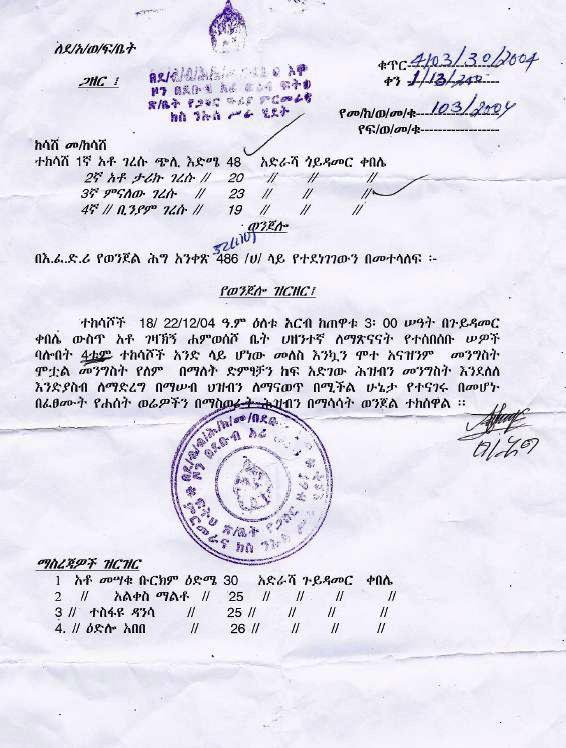 ለደ/አ/ወ/ፍ/ቤት
ጋዘር ፤
ቁጥር 4/03/30/2004
ቀን 1/13/200
የመ/ከ/ወ/መ/ቁ 103/2004
የፍ/ወ/መ/ቁ
ዞን በደቡብ አሪ ወረዳ ፍትህ
ጽ/ቤት የጋዘር ወንጀል ምርመራና
ክስ ንኡስ ሥራ ሂደት
ከሳሽ መ/ከሳሽ
ተከሳሽ 1ኛ አቶ ገረሱ ጭሊ እድሜ 48 አድራሻ ጎይዳመር ቀበሌ
2ኛ አቶ ታሪኩ ገረሱ // 20 // // //
3ኛ ምናለው ገረሱ // 23 // // //
4ኛ // ቢንያም ገረሱ // 19 // // //
ወንጀሉ
በኢ.ፌ.ድ.ሪ የወንጀል ሕግ አንቀጽ 486 /ሀ/ ላይ የተደነገገውን በመተላለፍ ፡-
የወንጀሉ ዝርዝር፤
ተከሳሾች 18/ 22/12/04 ዓ.ም ዕለቱ አርብ ከጠዋቱ 3፡ 00 ሠዓት በጉይዳመር
ቀበሌ ውስጥ አቶ ገዛኽኝ ሐምወሰሾ ቤት ሀዘንተኛ ለማጽናናት የተሰበሰቡ ሠዎች
ባሉበት 4ቱም ተከሳሾች አንድ ላይ ሆነው መለስ እንኳን ሞተ አናዝንም መንግስት
ሞቷል መንግስት የለም በማለት ድምፃቸን ከፍ አድገው ሕዝብን መንግስት እንደሌለ
እንድያስብ ለማድረግ በማሠብ ህዝብን ለማናወጥ በሚችል ሁኔታ የተናገሩ በመሆኑ
በፈፀሙት የሐሰት ወሬዎችን በማስወራት ሕዝብን በማሳሳት ወንጀል ተከሰዋል ።
ማስረጃዎች ዝርዝር
1 አቶ መሣቁ ቡርክም ዕድሜ 30 አድራሻ ጉይዳመር ቀበሌ
2 // አልቀስ ማልቶ // 25 // // // //
3 // ተስፋዬ ዳንሳ // 25 // // // //
4. // ዕድሉ አበበ // 26 // // // //